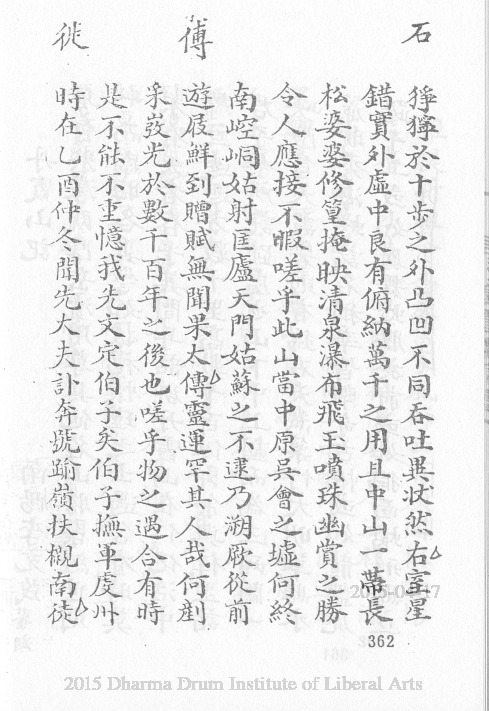 石
傅
徙
猙獰於十步之外凸凹不同吞吐異狀然右室星
錯實外虛中良有俯納萬千之用且中山一帶長
松婆娑修篁掩映清泉瀑布飛玉噴珠幽賞之勝
令人應接不暇嗟乎此山當中原吳會之墟何終
南崆峒姑射匡廬天門姑蘇之不逮乃溯厥從前
遊屐鮮到贈賦無聞果太傳靈運罕其人哉何剷
采發光於數千百年之後也嗟乎物之遇合有時
是不能不重憶我先文定伯子矣伯子撫軍虔州
時在乙酉仲冬聞先大夫訃奔號踰嶺扶櫬南徒
362
2015-04-17
2015 Dharma Drum Institute of Liberal Arts